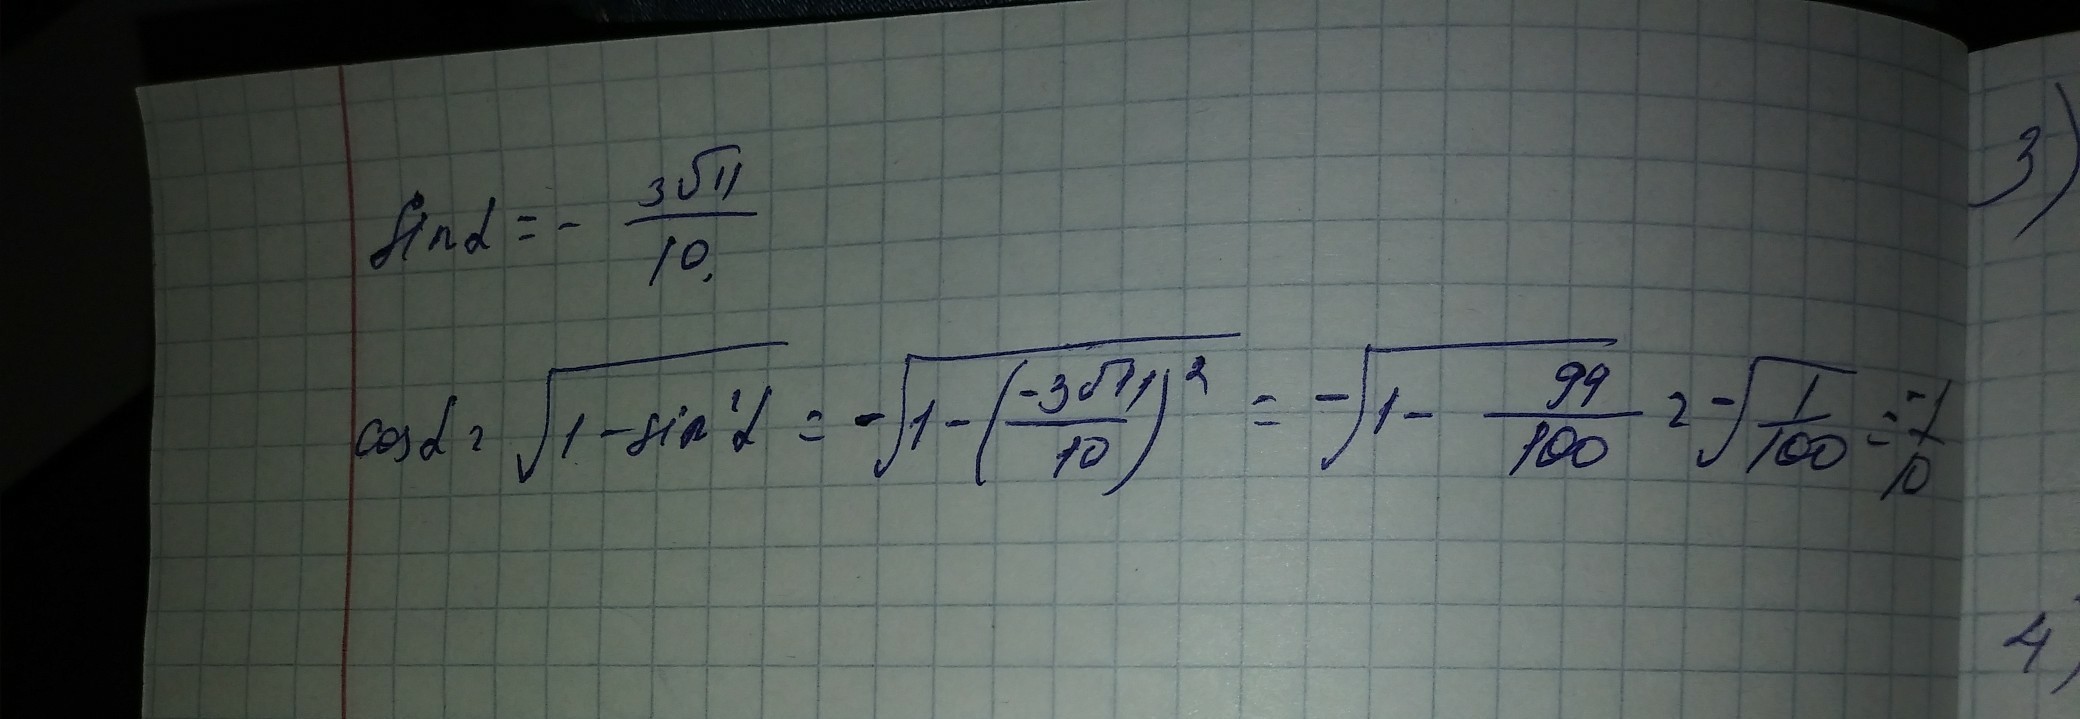 sin α = - 3√11/10.
cos α = √(1 - sin²α) = -√(1 - (-3√11/10)²) = -√(1 - 99/100) = -√(1/100) = -1/10
3)
4)